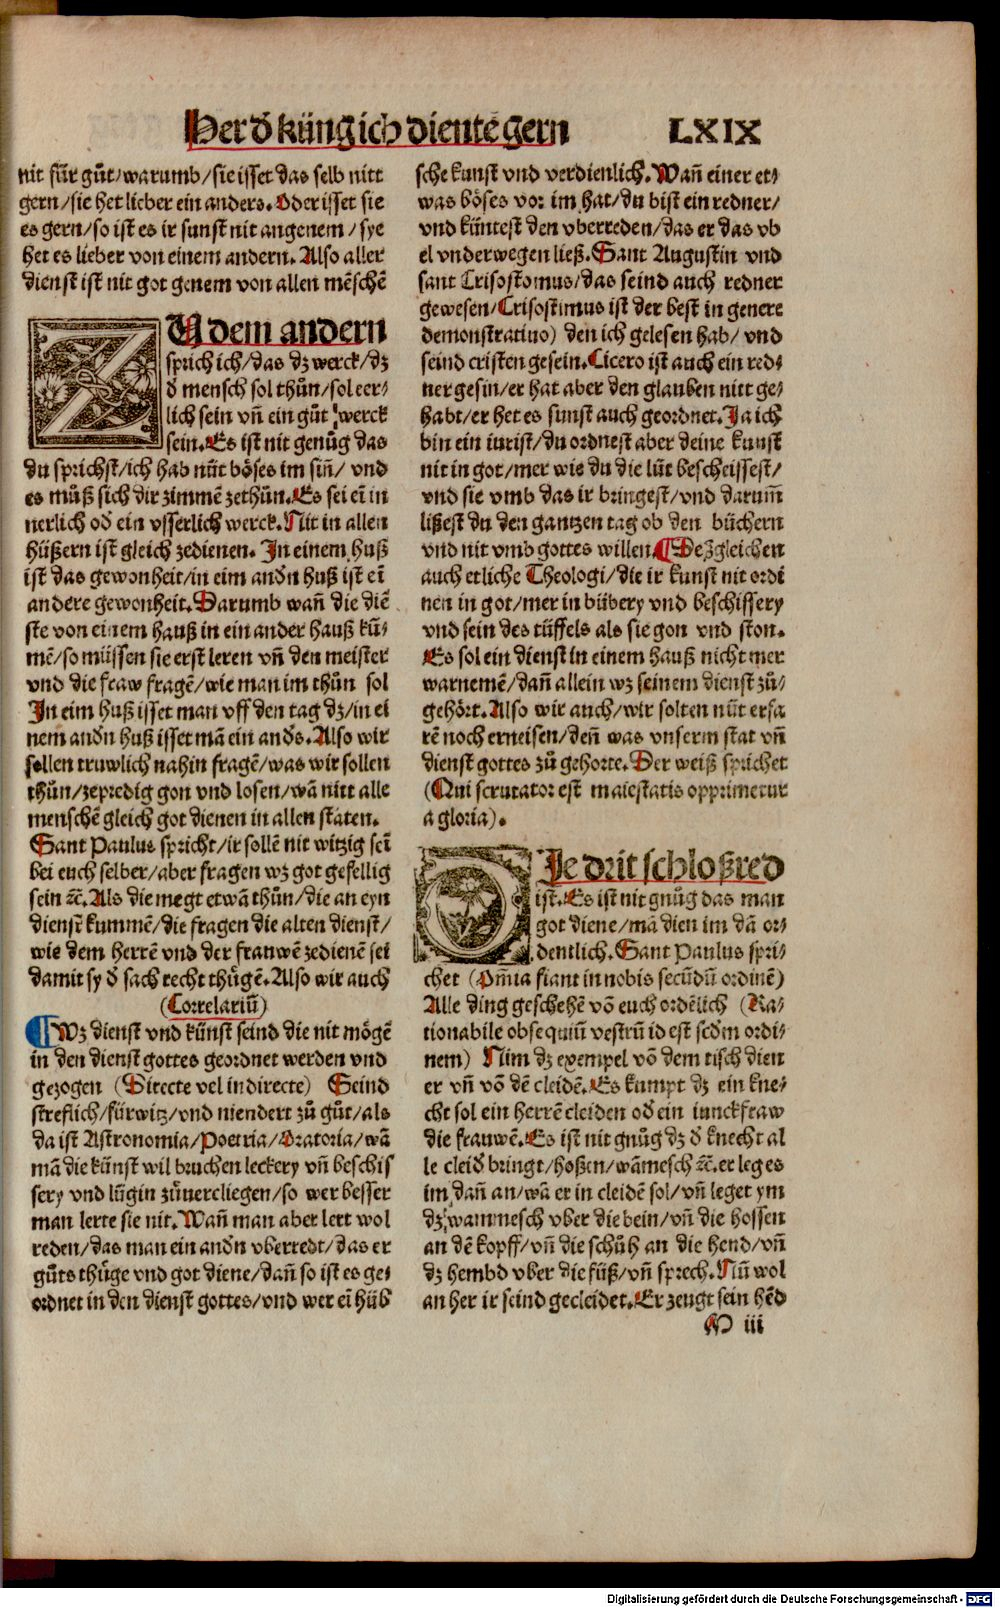 Her đ küng ich dientē gern LXIX
nit für gůt/warumb/sie isset das selb nitt
gern/sie het lieber ein anders. Oder isset sie
es gern/so ist es ir sunst nit angenem/sye
het es lieber von einem andern. Also aller
dienst ist nit got genem von allen mēschē
ZU dem andern
sprich ich/das dz werck/dz
đ mensch sol thůn/sol eer-
lich sein vñ ein gůt werck
sein. Es ist nit genůg das
du sprichst/ich hab nüt böses im siñ/ vnd
es můß sich dir zimmē zethůn. Es sei eī in
nerlich ođ ein vsserlich werck. Nit in allen
hüßern ist gleich zedienen. In einem huß
ist das gewonheit/in eim andn huß ist eī
andere gewonheit. Darumb wañ die diē
ste von einem hauß in ein ander hauß kū-
mē/so müssen sie erst leren vñ den meister
vnd die fraw fragē/wie man im thůn sol
In eim huß isset man vff den tag dz/in ei
nem andn huß isset mā ein anđs. Also wir
sollen truwlich nahin fragē/was wir sollen
thůn/zepredig gon vnd losen/wā nitt alle
menschē gleich got dienen in allen staten.
Sant Paulus spricht/ir sollē nit witzig seī
bei euch selber/aber fragen wz got gefellig
sein ꝛc̄. Als die megt etwā thůn/die an eyn
dienst kummē/die fragen die alten dienst/
wie dem herrē vnd der frauwē zedienē sei
damit sy đ sach recht thügē. Also wir auch
(Correlariū)
¶Wz dienst vnd künst seind die nit mögē
in den dienst gottes geordnet werden vnd
gezogen (Directe vel indirecte) Seind
streflich/fürwitz/vnd niendert zů gůt/als
da ist Astronomia/Poetria/Oratoria/wā
mā die künst wil bruchen leckery vñ beschis
sery vnd lūgin zůuercliegen/so wer besser
man lerte sie nit. Wañ man aber lert wol
reden/das man ein andn vberredt/das er
gůts thüge vnd got diene/dañ so ist es ge-
ordnet in den dienst gottes/vnd wer eī hüb
sche kunst vnd verdienlich. Wañ einer et-
was böses vor im hat/du bist ein redner/
vnd küntest den vberreden/das er das vb
el vnderwegen ließ. Sant Augustin vnd
sant Crisostomus/das seind auch redner
gewesen/Crisostimus ist der best in genere
demonstratiuo) den ich gelesen hab/ vnd
seind cristen gesein. Cicero ist auch ein red-
ner gesin/er hat aber den glauben nitt ge-
habt/er het es sunst auch geordnet. Ja ich
bin ein iurist/du ordnest aber deine kunst
nit in got/mer wie du die lüt bescheissest/
vnd sie vmb das ir bringest/vnd darum̄
lißest du den gantzen tag ob den büchern
vnd nit vmb gottes willen. ¶Deßgleichen
auch etliche Theologi/die ir kunst nit ordi
nen in got/mer in bübery vnd beschissery
vnd sein des tüffels als sie gon vnd ston.
Es sol ein dienst in einem hauß nicht mer
warnemē/dañ allein wz seinem dienst zů-
gehört. Also wir auch/wir solten nüt erfa
rē noch erneisen/deñ was vnserm stat vñ
dienst gottes zů gehorte. Der weiß sprichet
(Qui scrutator est maiestatis opprimetur
a gloria).
DIe drit schloßred
ist. Es ist nit gnůg das man
got diene/mā dien im dā or-
dentlich. Sant Paulus spri-
chet (Om̄ia fiant in nobis secūdū ordinē)
Alle ding geschehē vō euch ordēlich (Ra-
tionabile obsequiū vestrū id est scdm ordi-
nem) Nim dz exempel vō dem tisch dien
er vñ vō dē cleidē. Es kumpt dz ein kne-
cht sol ein herrē cleiden ođ ein iunckfraw
die frauwē. Es ist nit gnůg dz đ knecht al
le cleiđ bringt/hoßen/wāmesch ꝛc̄. er leg es
im dañ an/wā er in cleidē sol/vñ leget ym
dz wammesch vber die bein/vñ die hossen
an dē kopff/vñ die schůh an die hend/vñ
dz hembd vber die füß/vñ sprech. Nū wol
an her ir seind gecleidet. Er zeugt sein hēd
M iii
Digitalisierung gefördert durch die Deutsche Forschungsgemeinschaft - DFG